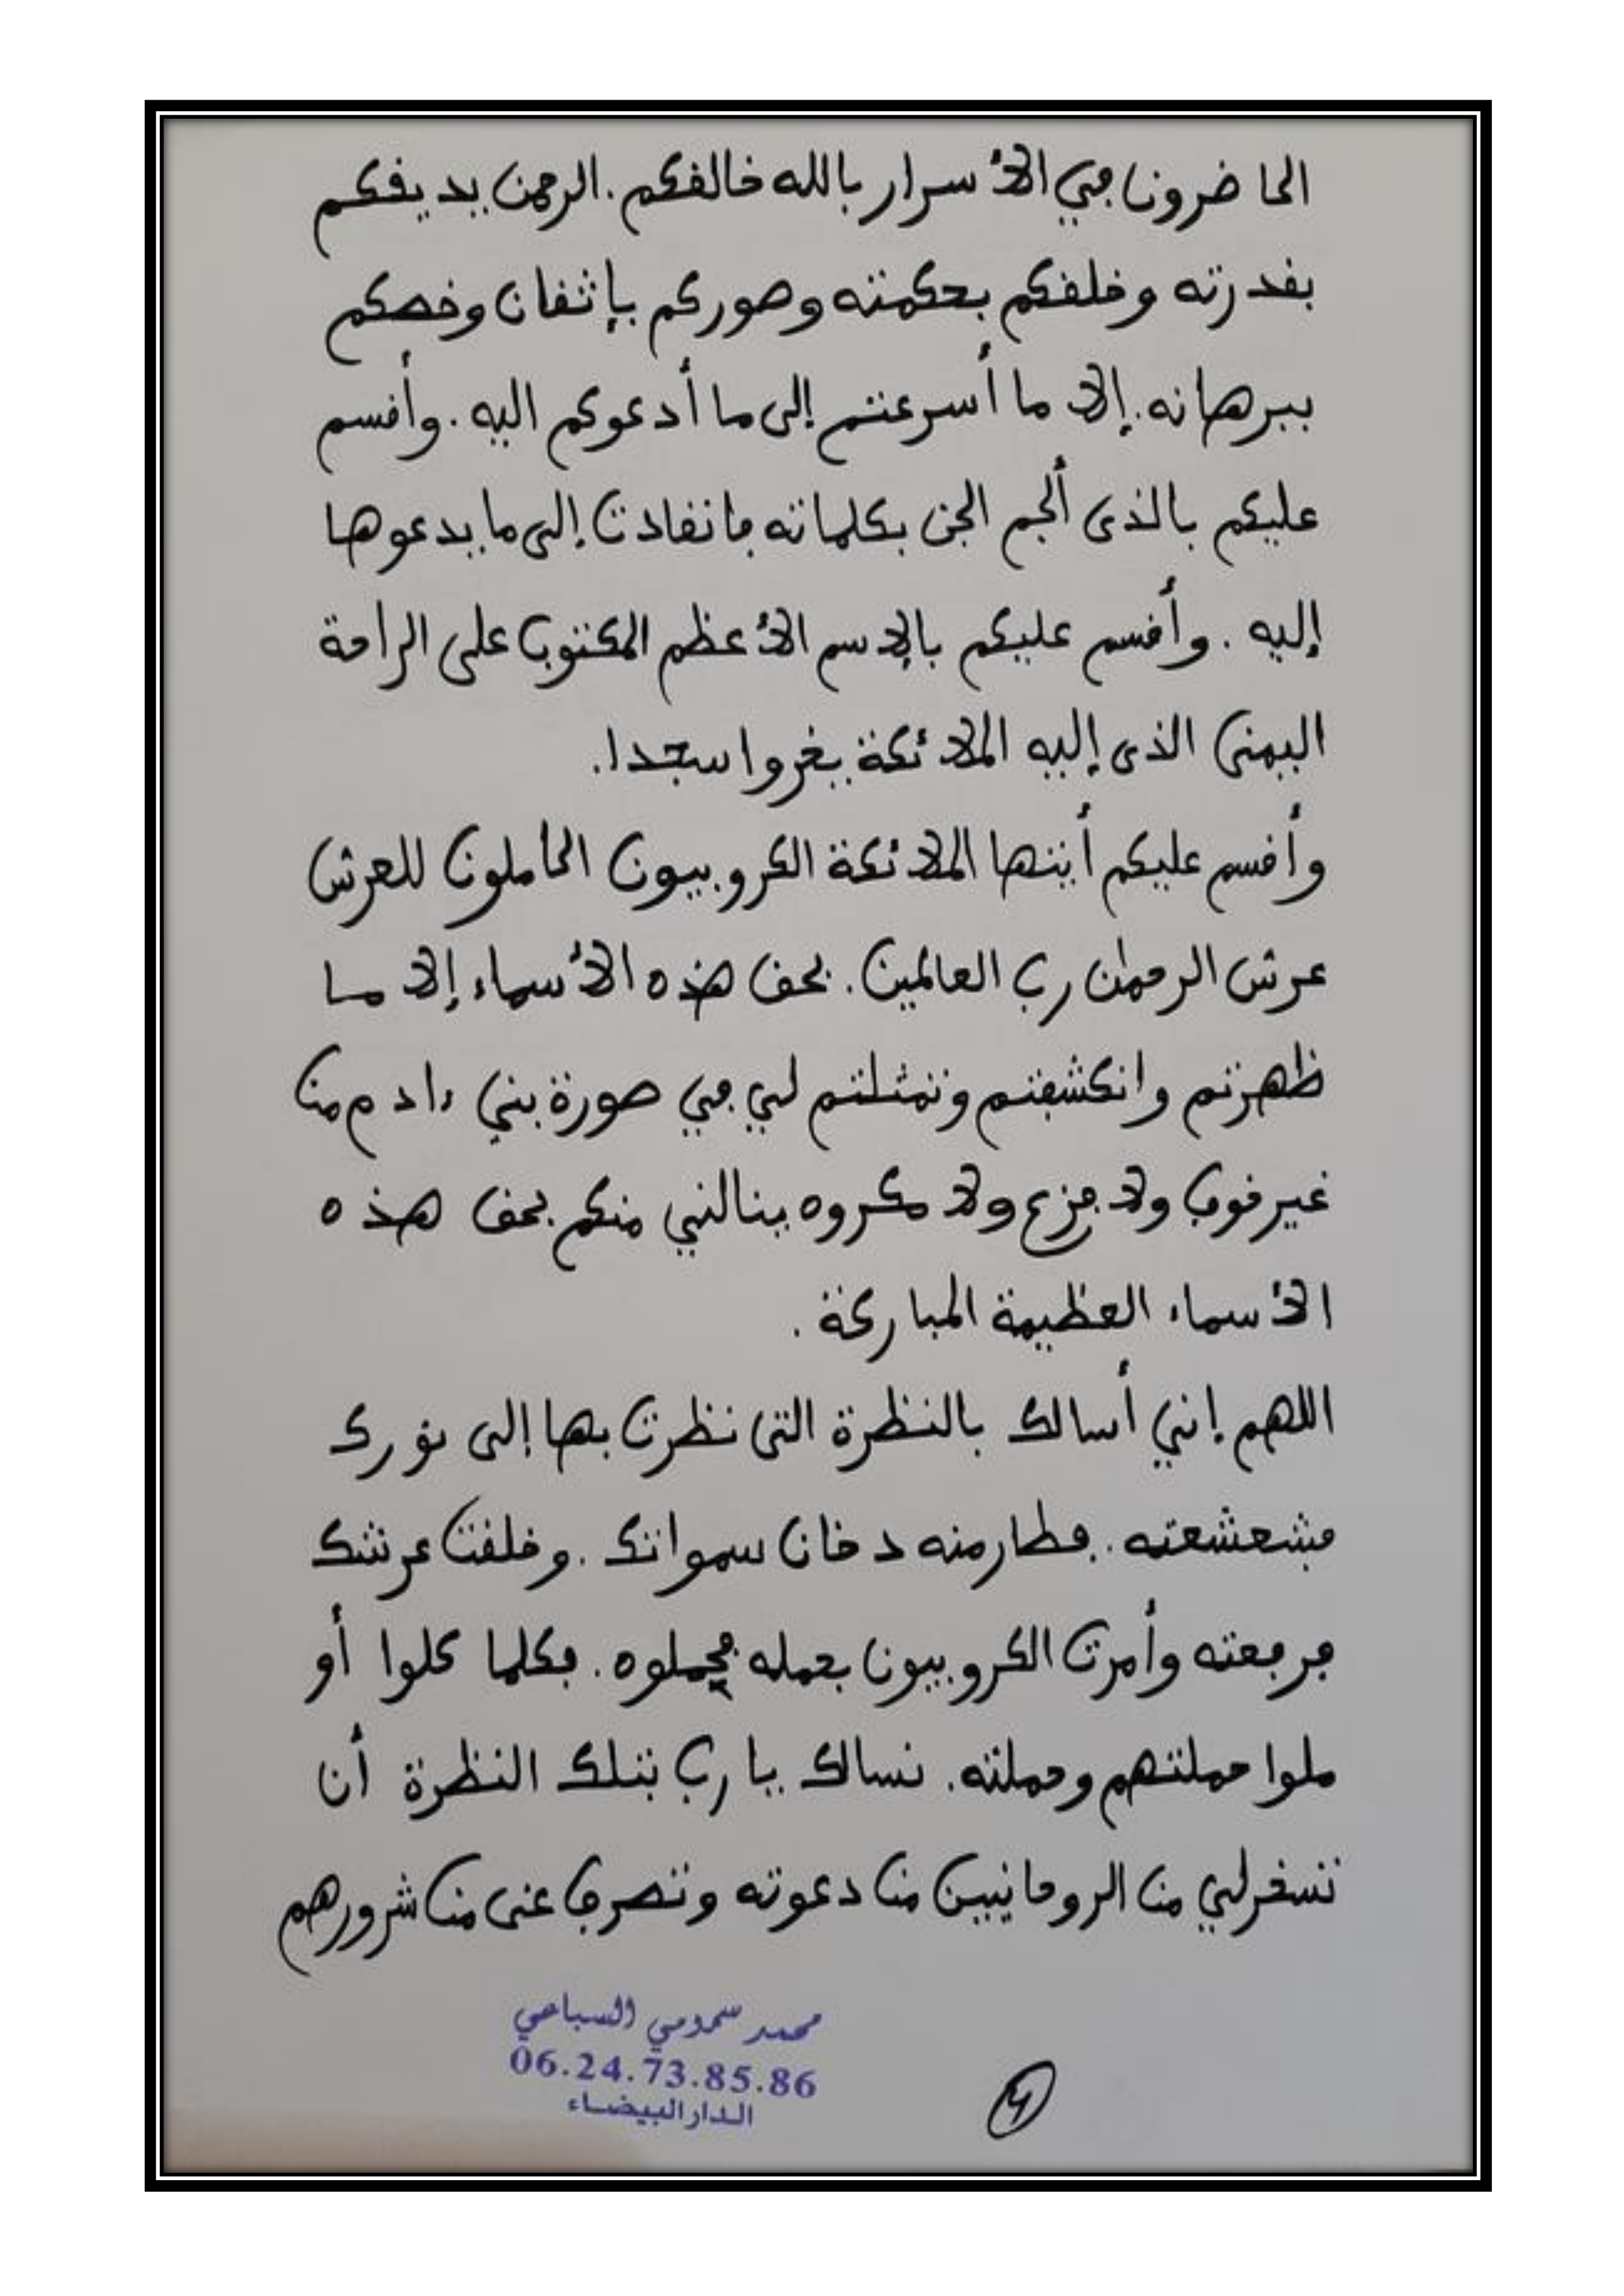 الحاضرون في الأسرار بالله خالقكم. الرحمن يديقكم
بقدرته وخلقكم بحكمته وصوركم بإثقان وخصكم
ببرهانه. إلا ما أسرعتم إلى ما أدعوكم اليه. وأقسم
عليكم بالذى ألجم الجن بكلماته فانقادت إلى ما يدعوها
إليه. وأقسم عليكم بالإسم الأعظم المكتوب على الراحة
اليمنى الذى إليه الملائكة يخروا سجدا.
وأقسم عليكم أيتها الملائكة الكروبيون الحاملون للعرش
عرش الرحمان رب العالمين. بحق هذه الأسماء إلا ما
ظهرتم وانكشفتم وتمثلتم لي في صورة بني ءادم من
غير خوف ولا فزع ولا مكروه ينالني منكم بحق هذه
الأسماء العظيمة المباركة.
اللهم إني أسالك بالنظرة التى نظرت بها إلى نورك
فشعشعته. فطار منه دخان سمواتك. وخلقت عرشك
فرفعته وأمرت الكروبيون بحمله فحملوه. فكلما كلوا أو
ملوا حملتهم وحملته. نسالك يا رب بتلك النظرة أن
تسخر لي من الروحانيين من دعوته وتصرف عنى من شرورهم
محمد سمومي السباعي
06.24.73.85.86
الدار البيضاء
4